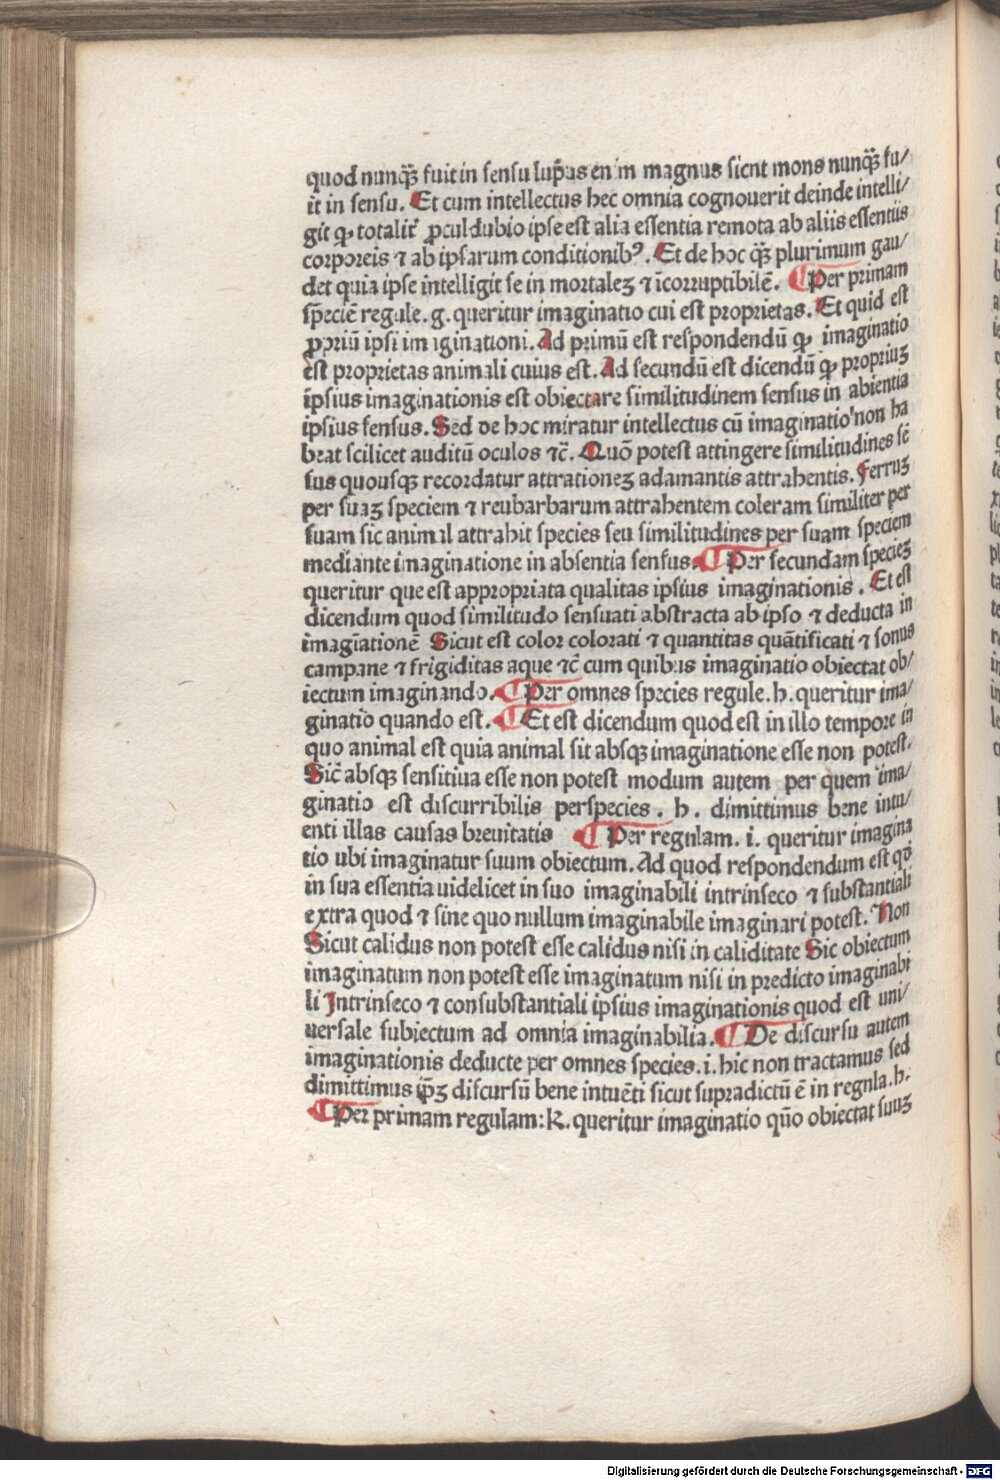 quod nunqꝫ̃ fuit in sensu lup̃us enim magnus sicut mons nunqꝫ̃ fu/
it in sensu. Et cum intellectus hec omnia cognouerit deinde intelli/
git ꝙ totalit̃ ꝓculdubio ipse est alia essentia remota ab aliis essentiis
corporeis ⁊ ab ipsarum conditionibꝰ. Et de hoc qꝫ̃ plurimum gau/
det quia ipse intelligit se in mortaleꝫ ⁊ icorruptibilē. ¶ Per primam
speciē regule. g. queritur imaginatio cui est proprietas. Et quid est
ꝓpriū ipsi imaginationi. Ad primū est respondendū ꝙ imaginatio
est proprietas animali cuius est. Ad secundū est dicendū ꝙ propriuꝫ
ipsius imaginationis est obiectare similitudinem sensus in absentia
ipsius sensus. Sed de hoc miratur intellectus cū imaginatio non ha
beat scilicet auditū oculos ⁊c̃. Quō potest attingere similitudines sē
sus quousqꝫ recordatur attrationeꝫ adamantis attrahentis. Ferruꝫ
per suaꝫ speciem ⁊ reubarbarum attrahentem coleram similiter per
suam sic animal attrahit species seu similitudines per suam speciem
mediante imaginatione in absentia sensus. ¶ Per secundam specieꝫ
queritur que est appropriata qualitas ipsius imaginationis. Et est
dicendum quod similitudo sensuati abstracta ab ipso ⁊ deducta in
imagiationē Sicut est color colorati ⁊ quantitas quātificati ⁊ sonus
campane ⁊ frigiditas aque ⁊c̃ cum quibus imaginatio obiectat ob/
iectum imaginando. ¶ Per omnes species regule. h. queritur ima/
ginatio quando est. ¶ Et est dicendum quod est in illo tempore in
quo animal est quia animal sit absqꝫ imaginatione esse non potest.
Sic̃ absqꝫ sensitiua esse non potest modum autem per quem ima/
ginatio est discurribilis perspecies. h. dimittimus bene intu/
enti illas causas breuitatis ¶ Per regulam. i. queritur imagina
tio ubi imaginatur suum obiectum. Ad quod respondendum est qđ
in sua essentia uidelicet in suo imaginabili intrinseco ⁊ substantiali
extra quod ⁊ sine quo nullum imaginabile imaginari potest. Non
Sicut calidus non potest esse calidus nisi in caliditate Sic obiectum
imaginatum non potest esse imaginatum nisi in predicto imaginabi
li Intrinseco ⁊ consubstantiali ipsius imaginationis quod est uni/
uersale subiectum ad omnia imaginabilia. ¶ De discursu autem
imaginationis deducte per omnes species. i. hic non tractamus sed
dimittimus ip̃ꝫ discursū bene intuēti sicut supradictū ē in regula. h.
¶ Per primam regulam: k. queritur imaginatio quō obiectat suuꝫ
Digitalisierung gefördert durch die Deutsche Forschungsgemeinschaft - DFG